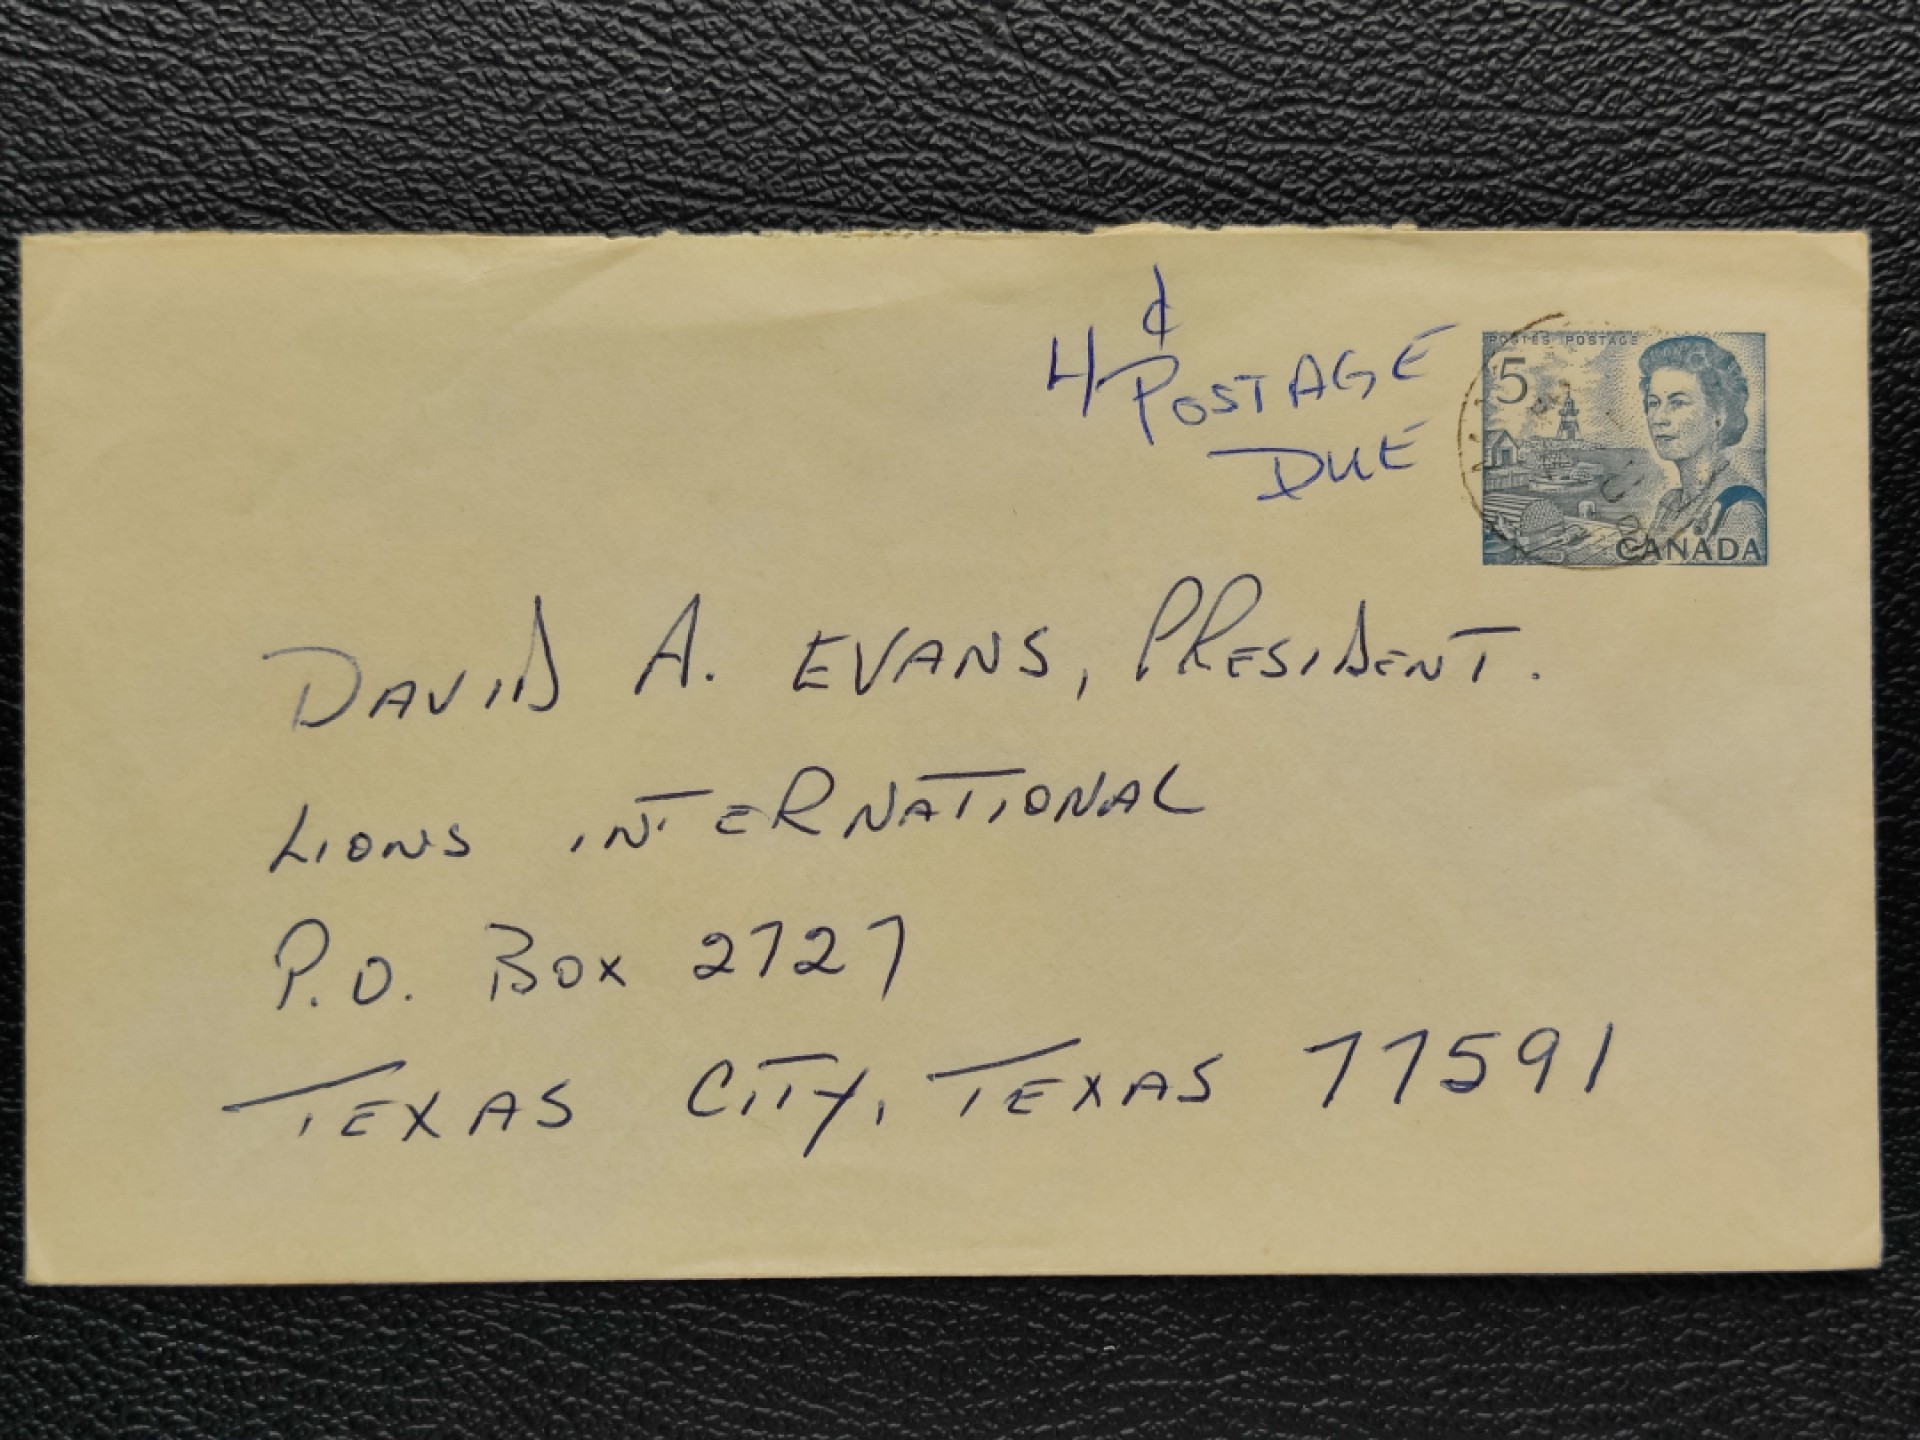 4¢
POSTAGE
DUE
POSTES POSTAGE
5
CANADA
DAVID A. EVANS, PRESIDENT.
LIONS INTERNATIONAL
P.O. BOX 2727
TEXAS CITY, TEXAS 77591